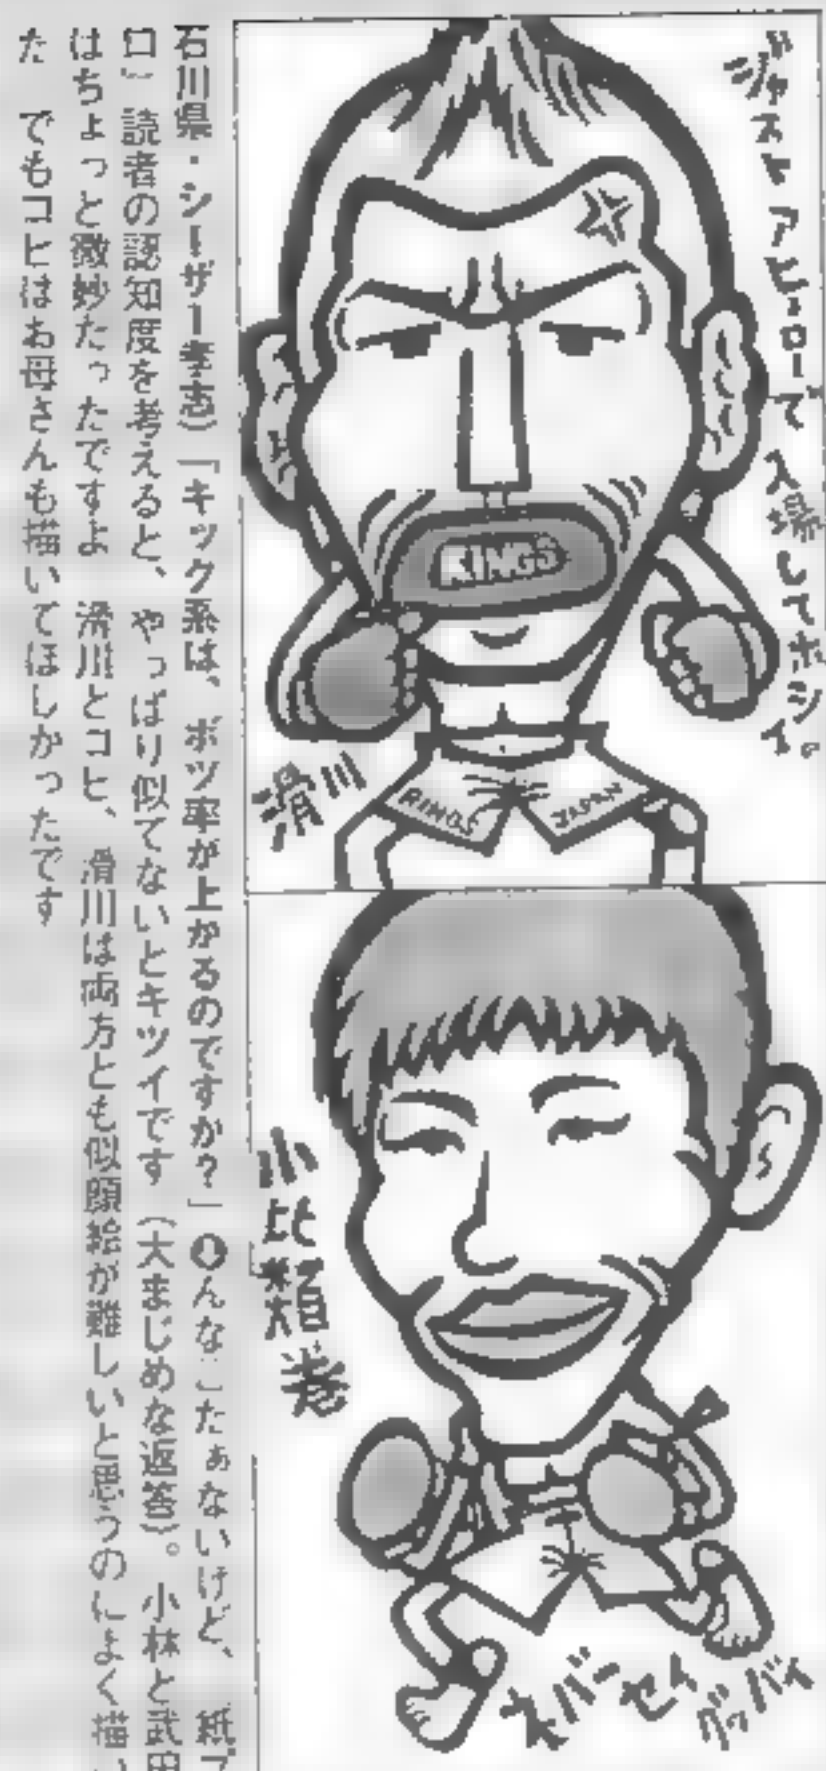 ジャストアヒーローで入場してホシイ。
KINGS
RINGS
JAPAN
滑川
小比類巻
ネバーセイグッバイ
石川県・シーザー孝志)「キック系は、ボツ率が上がるのですか?」
んなこたぁないけど、紙プ
口」読者の認知度を考えると、やっぱり似てないとキツイです(大まじめな返答)。小林と武田
はちょっと微妙だったですよ 滑川とコヒ、滑川は両方とも似顔絵が難しいと思うのによく描い
た でもコヒはお母さんも描いてほしかったです